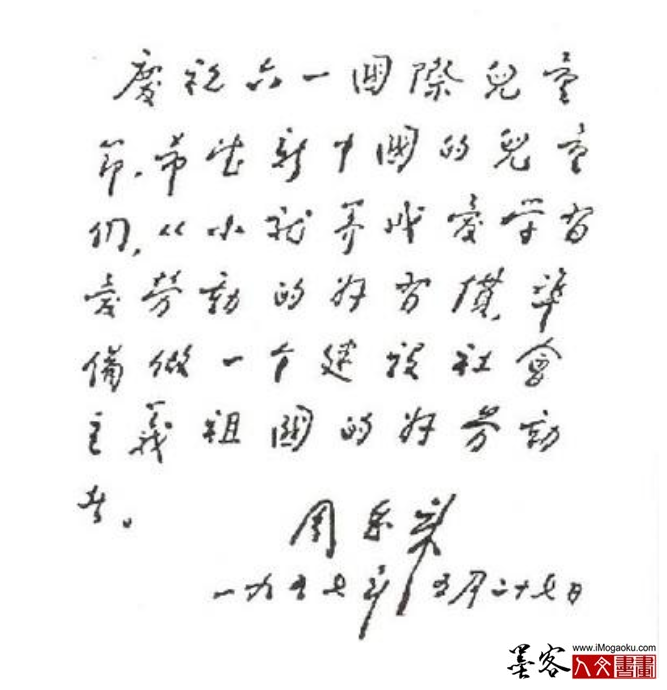 慶祝六一國際兒童
節,希望新中國的兒童
們,从小就养成愛学習
愛劳動的好習慣,準
備做一个建設社會
主義祖國的好劳動
者。
周
一九五七年五月二十七日
www.iMogaoku.com
墨客 人文書畫